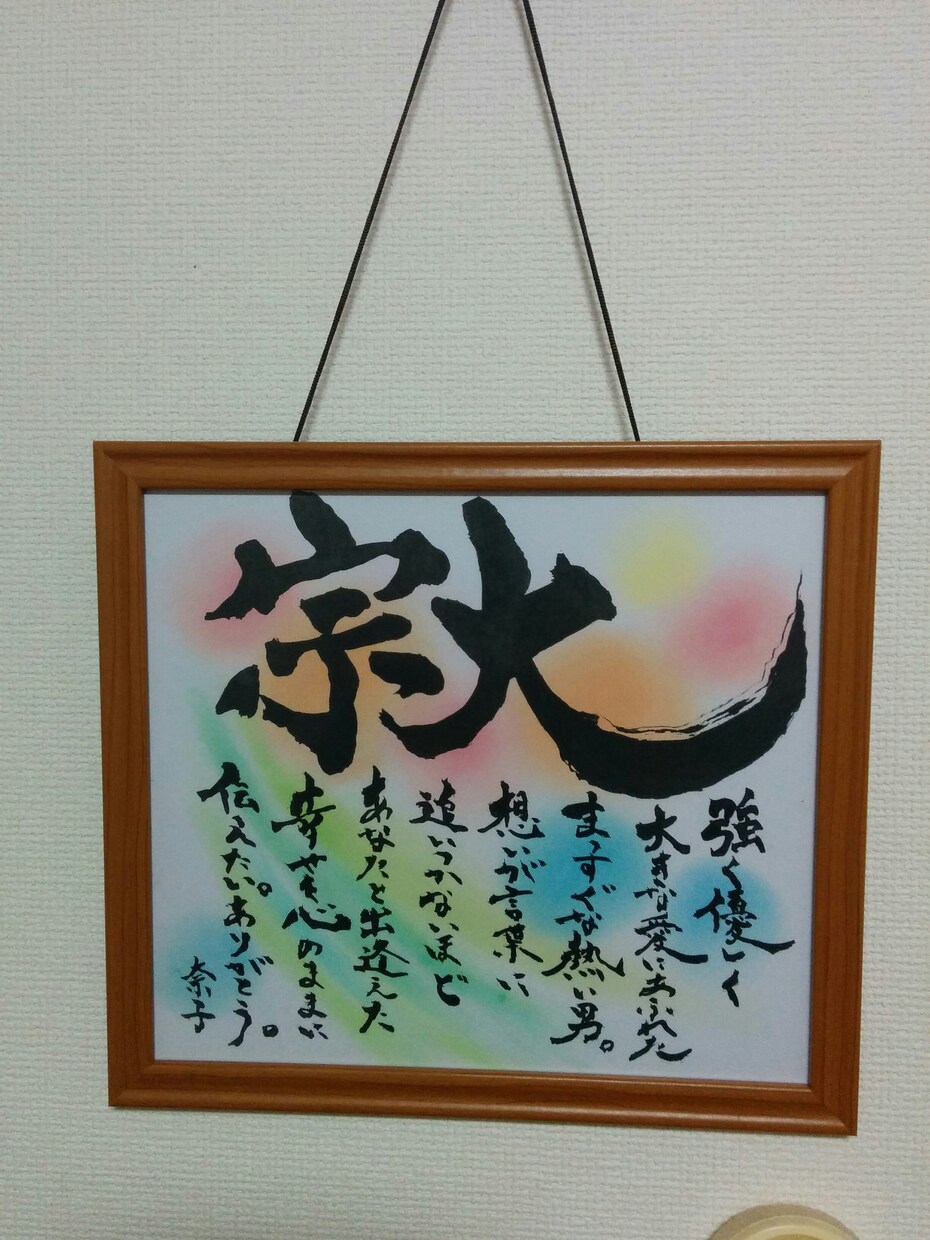 宗大
強く優しく
大きな愛にあふれた
まっすぐな熱い男。
想いが言葉に
追いつかないほど
あなたと出逢えた
幸せを心のままに
伝えたい。ありがとう。
奈子